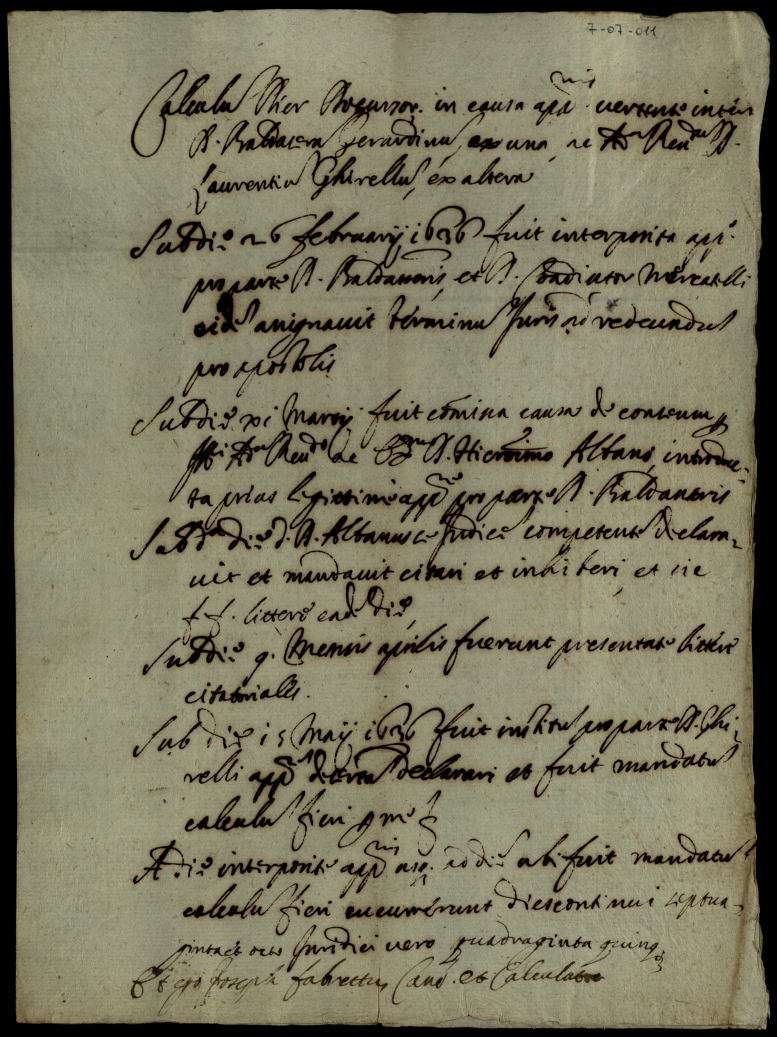 7-07-011
Calculu Dier Decursor. in causa app.nis vertente inter
D. Baldaeem Gerardinu, ex una, ac Adm Rendum D.
Laurentiu Ghirellu, ex altera
Sub die 26 februarij 1636 fuit interposita app.
pro parte D. Baldaneris, et D. Mercatelli
eide assignavit terminu Juris ad redeundu
pro apostolis
Sub die xi Martij fuit comissa causa de consensu
Adm Rendo ac D. Hieronimo Albano, introduc-
ta prius legittime app.ne pro parte D. Baldaneris
Sub da die d. D. Albanus se Judice competente declara-
vit et mandavit citari et inhiberi, et sic
f. f. littere eade die,
Sub die 9. Mensis aprilis fuerunt presentate littere
citatoriales.
Sub die 15 Maij 1636 fuit institu pro parte D. Ghi-
relli app.ne deserta declarari et fuit mandatu
calculu fieri
A die interposite app.nis usq. ad die ubi fuit mandatu
calculu fieri cucurrerunt dies continui septua-
ginta octo Juridici vero quadraginta quinq
Et ego Joseph fabrettus Canc. et Calculator